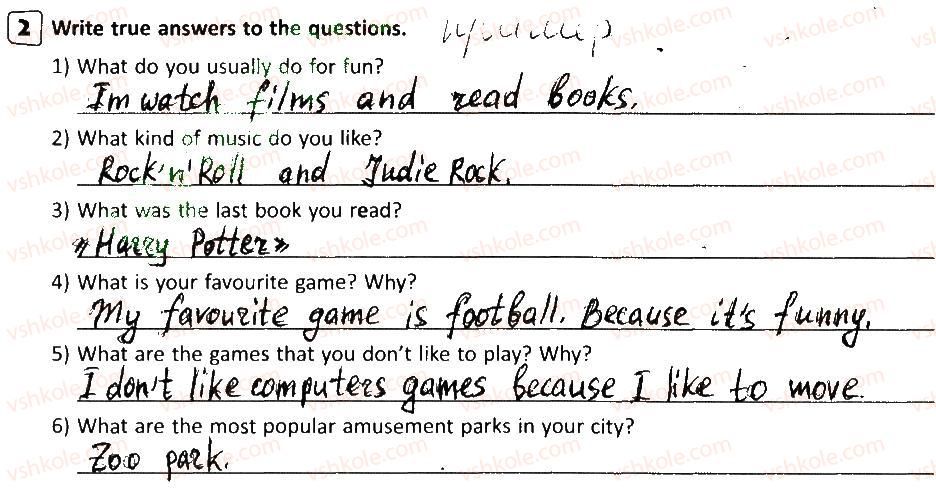 2 Write true answers to the questions. пример
1) What do you usually do for fun?
Im watch films and read books.
2) What kind of music do you like?
Rock'n'Roll and Indie Rock.
3) What was the last book you read?
«Harry Potter»
4) What is your favourite game? Why?
My favourite game is football. Because it's funny.
5) What are the games that you don't like to play? Why?
I don't like computers games because I like to move.
6) What are the most popular amusement parks in your city?
Zoo park.